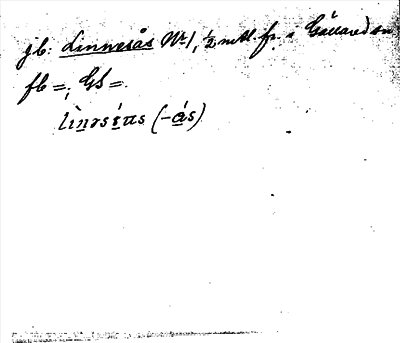 jb: Linnesås Nr 1, ½ mtl. fr. i Gällared sn
fb =; GS =
(-ás)